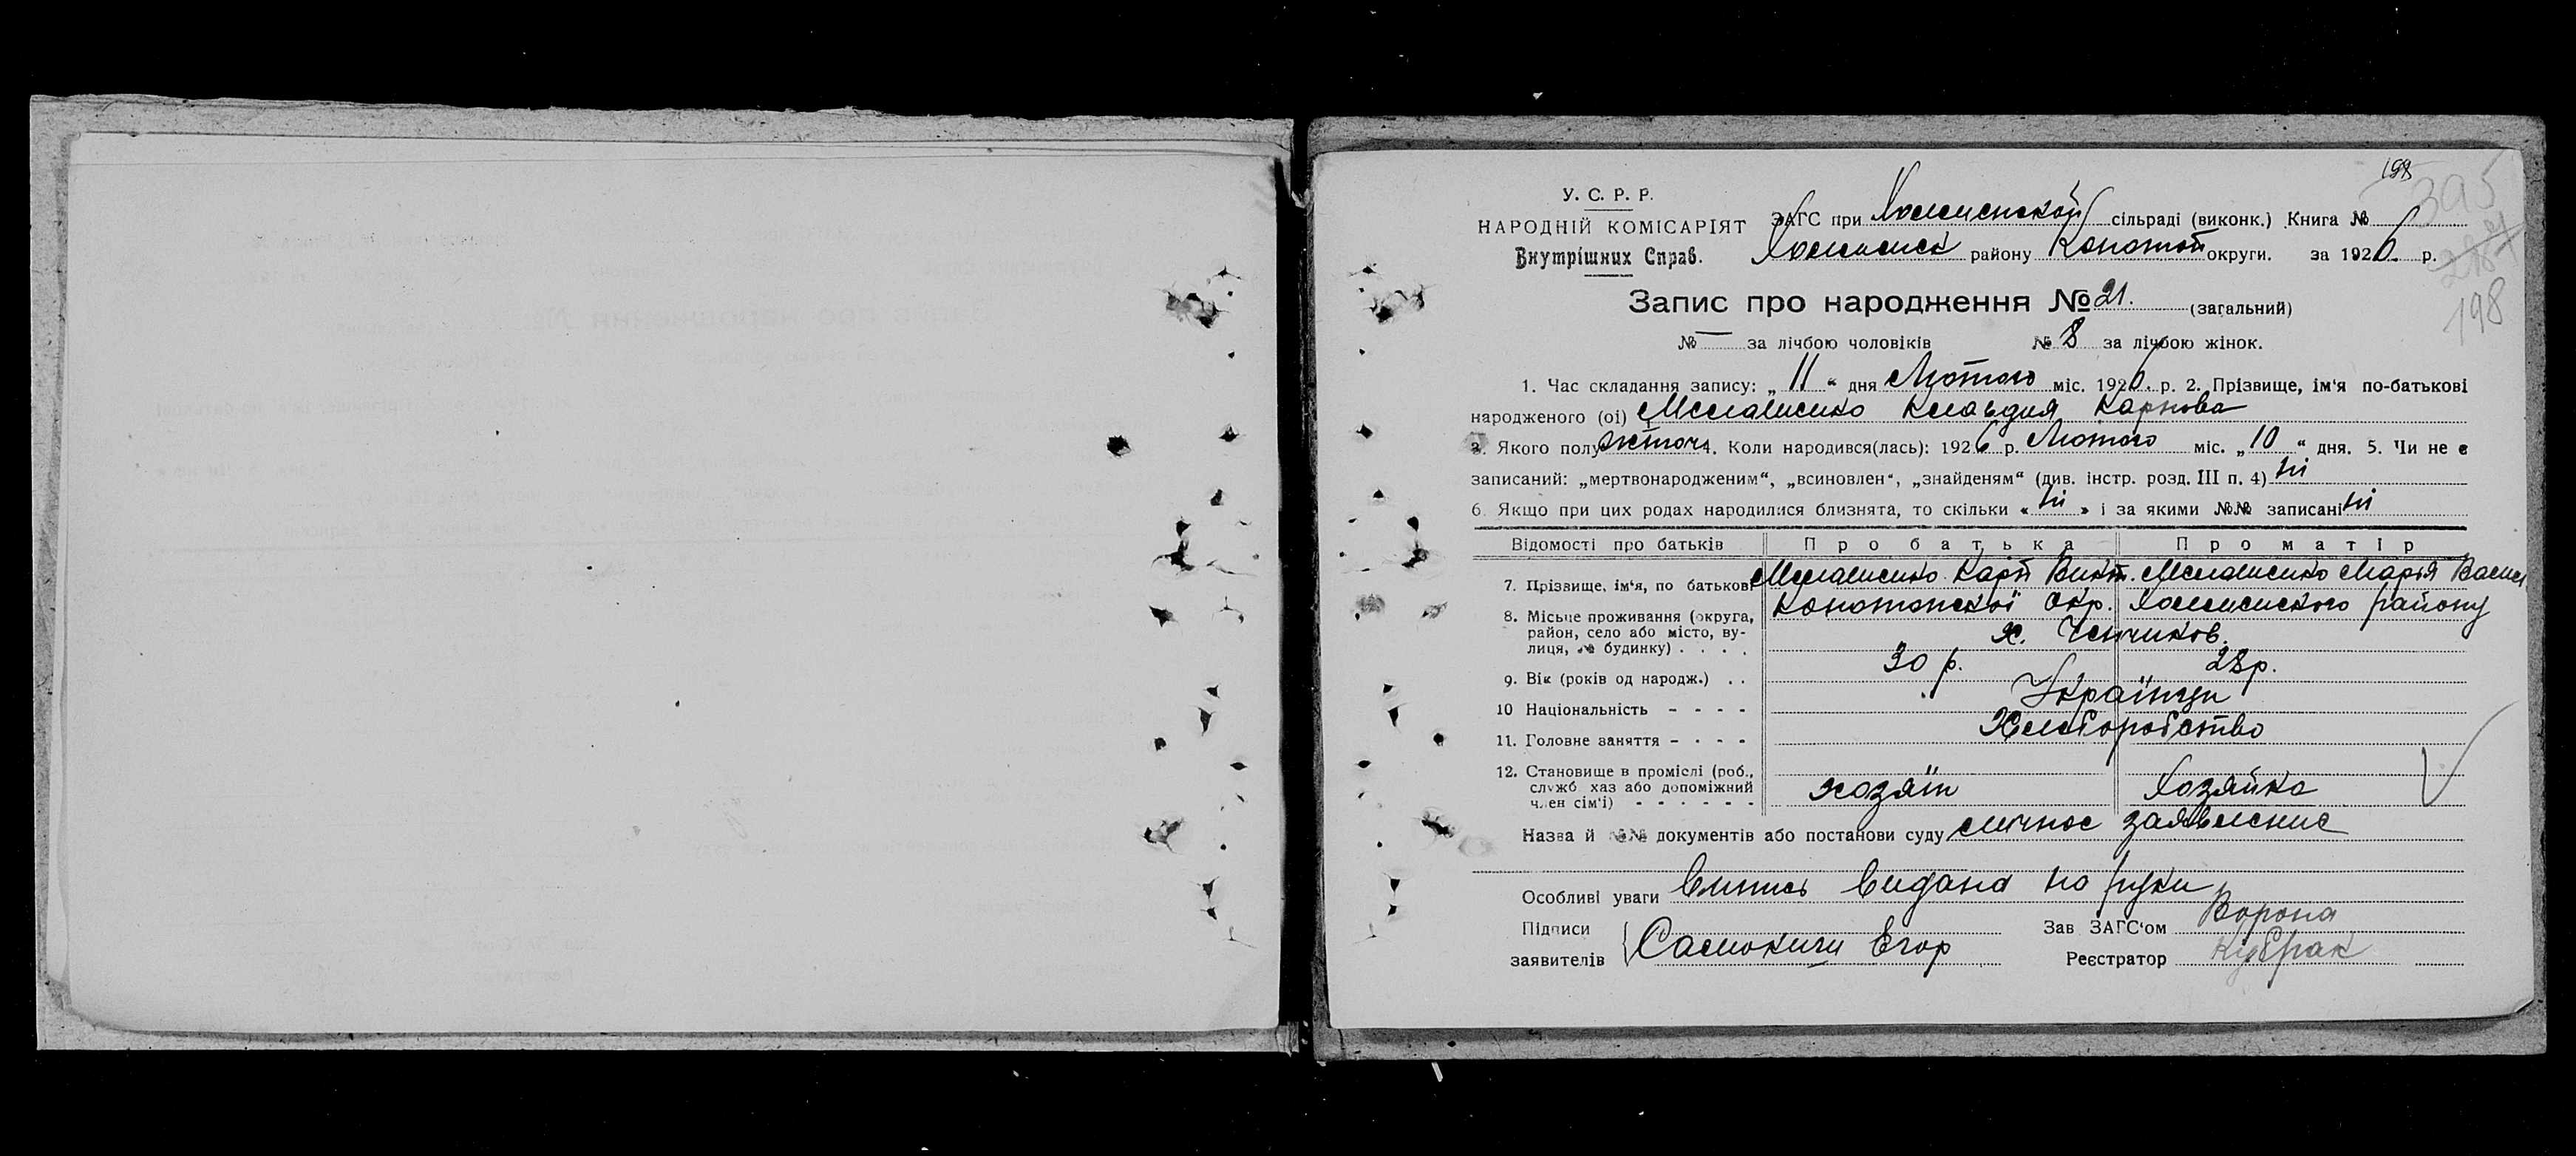 198
395
У. С. Р. Р.
НАРОДНІЙ КОМІСАРІЯТ
Внутрішних Справ.
ЗАГС при Холменской сільраді (виконк.) Книга №
Холменск району Конотоп округи. за 1926 р.
198
Запис про народження № 21. (загальний)
№ — за лічбою чоловіків № 8 за лічбою жінок.
1. Час складання запису: „ 11 “ дня Лютого міс. 1926. р. 2. Прізвище, ім'я по-батькові
народженого (ої) Клавдия Карпова
3. Якого полу 4. Коли народився(лась): 1926 р. Лютого міс. „ 10 “ дня. 5. Чи не є
записаний: „мертвонародженим“, „всиновлен“, „знайденям“ (див. інстр. розд. III п. 4) ні
6. Якщо при цих родах народилися близнята, то скільки « ні » і за якими №№ записані ні
Відомості про батьків Про батька Про матір
7. Прізвище, ім'я, по батькові Карп Викт. Марья Васил
8. Місьце проживання (округа, район, село або місто, ву-лиця, № будинку) . . . . Конотопскої Окр. Холменского району
х. Ченчиков.
9. Вік (років од народж.) . . 30 р. 28 р.
10 Національність - - - - Українци
11. Головне заняття - - - - Хлеборобство
12. Становище в проміслі (роб., служб хаз або допоміжний член сім'ї) - - - - - - хозяїн Хозяйка
Назва й №№ документів або постанови суду личное заявление
Особливі уваги Випись видана на руки
Підписи
заявителів Егор
Зав ЗАГС'ом Ворона
Реєстратор Кубрак